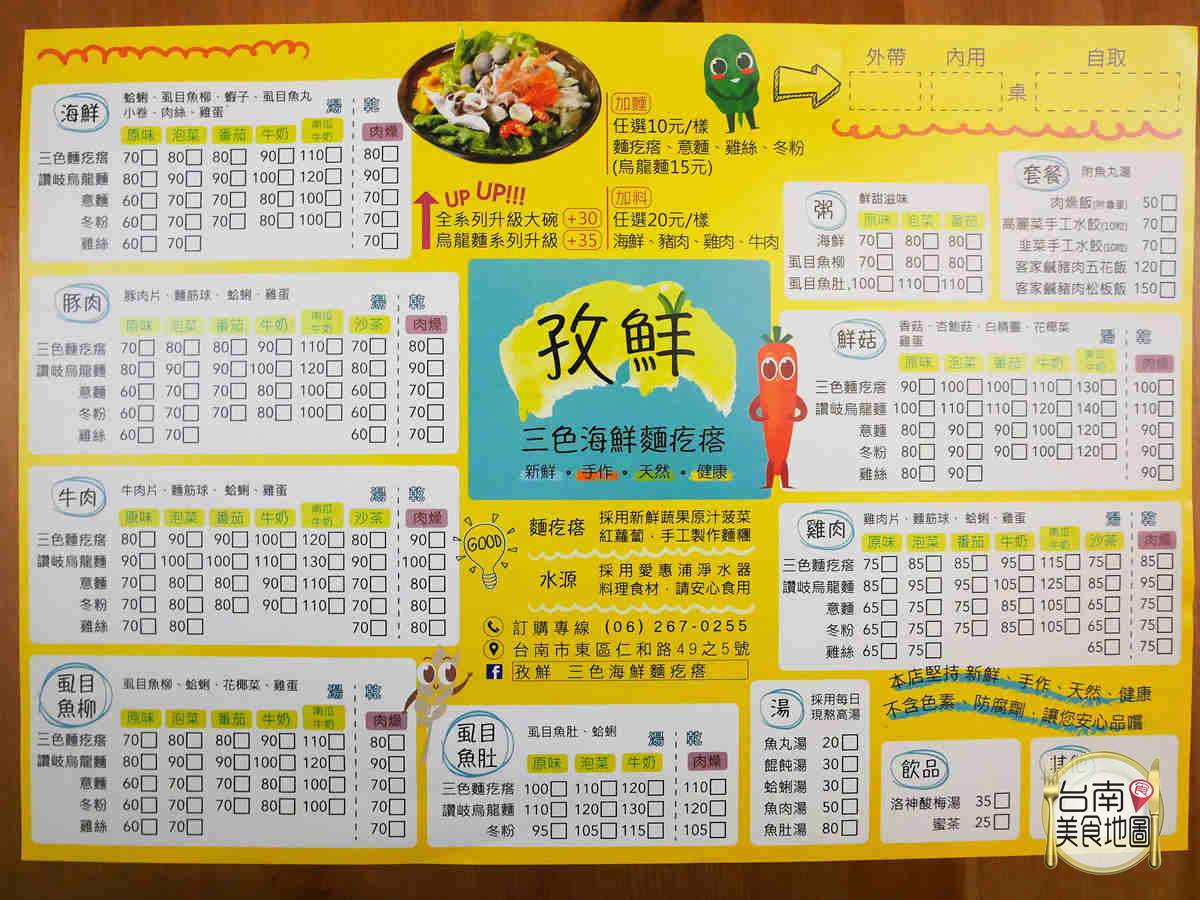 外帶 內用 自取
桌
海鮮
蛤蜊、虱目魚柳、蝦子、虱目魚丸
小卷、肉絲、雞蛋
湯 乾
原味 泡菜 番茄 牛奶 南瓜牛奶 肉燥
三色麵疙瘩 70 80 80 90 110 80
讚岐烏龍麵 80 90 90 100 120 90
意麵 60 70 70 80 100 70
冬粉 60 70 70 80 100 70
雞絲 60 70 70
加麵
任選10元/樣
麵疙瘩、意麵、雞絲、冬粉
(烏龍麵15元)
UP UP!!!
全系列升級大碗 +30
烏龍麵系列升級 +35
加料
任選20元/樣
海鮮、豬肉、雞肉、牛肉
粥
鮮甜滋味
原味 泡菜 番茄
海鮮 70 80 80
虱目魚柳 70 80 80
虱目魚肚 100 110 110
套餐 附魚丸湯
肉燥飯(附魯蛋) 50
高麗菜手工水餃(10粒) 70
韭菜手工水餃(10粒) 70
客家鹹豬肉五花飯 120
客家鹹豬肉松板飯 150
豚肉
豚肉片、麵筋球、蛤蜊、雞蛋
湯 乾
原味 泡菜 番茄 牛奶 南瓜牛奶 沙茶 肉燥
三色麵疙瘩 70 80 80 90 110 70 80
讚岐烏龍麵 80 90 90 100 120 80 90
意麵 60 70 70 80 100 60 70
冬粉 60 70 70 80 100 60 70
雞絲 60 70 60 70
孜鮮
三色海鮮麵疙瘩
新鮮・手作・天然・健康
鮮菇
香菇、杏鮑菇、白精靈、花椰菜
雞蛋
湯 乾
原味 泡菜 番茄 牛奶 南瓜牛奶 肉燥
三色麵疙瘩 90 100 100 110 130 100
讚岐烏龍麵 100 110 110 120 140 110
意麵 80 90 90 100 120 90
冬粉 80 90 90 100 120 90
雞絲 80 90 90
牛肉
牛肉片、麵筋球、蛤蜊、雞蛋
湯 乾
原味 泡菜 番茄 牛奶 南瓜牛奶 沙茶 肉燥
三色麵疙瘩 80 90 90 100 120 80 90
讚岐烏龍麵 90 100 100 110 130 90 100
意麵 70 80 80 90 110 70 80
冬粉 70 80 80 90 110 70 80
雞絲 70 80 70 80
GOOD
麵疙瘩
採用新鮮蔬果原汁菠菜
紅蘿蔔．手工製作麵糰
水源
採用愛惠浦淨水器
料理食材．請安心食用
訂購專線 (06) 267-0255
台南市東區仁和路49之5號
f 孜鮮 三色海鮮麵疙瘩
雞肉
雞肉片、麵筋球、蛤蜊、雞蛋
湯 乾
原味 泡菜 番茄 牛奶 南瓜牛奶 沙茶 肉燥
三色麵疙瘩 75 85 85 95 115 75 85
讚岐烏龍麵 85 95 95 105 125 85 95
意麵 65 75 75 85 105 65 75
冬粉 65 75 75 85 105 65 75
雞絲 65 75 65 75
本店堅持 新鮮、手作、天然、健康
不含色素、防腐劑；讓您安心品嚐
虱目魚柳
虱目魚柳、蛤蜊、花椰菜、雞蛋
湯 乾
原味 泡菜 番茄 牛奶 南瓜牛奶 肉燥
三色麵疙瘩 70 80 80 90 110 80
讚岐烏龍麵 80 90 90 100 120 90
意麵 60 70 70 80 100 70
冬粉 60 70 70 80 100 70
雞絲 60 70 70
虱目魚肚
虱目魚肚、蛤蜊
湯 乾
原味 泡菜 牛奶 肉燥
三色麵疙瘩 100 110 120 110
讚岐烏龍麵 110 120 130 120
冬粉 95 105 115 105
湯
採用每日
現熬高湯
魚丸湯 20
餛飩湯 30
蛤蜊湯 30
魚肉湯 50
魚肚湯 80
飲品
洛神酸梅湯 35
蜜茶 25
其他
台南食
美食地圖